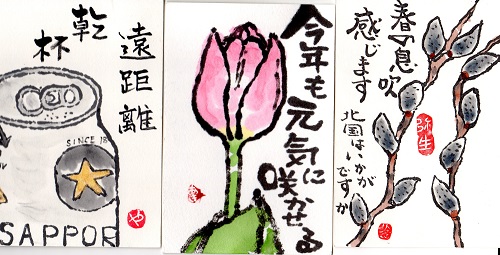 遠距離
乾
杯
SINCE 18
SAPPOR
や
今年も
元気に
咲かせる
春の息吹
感じます
北国はいかが
ですか
弥生